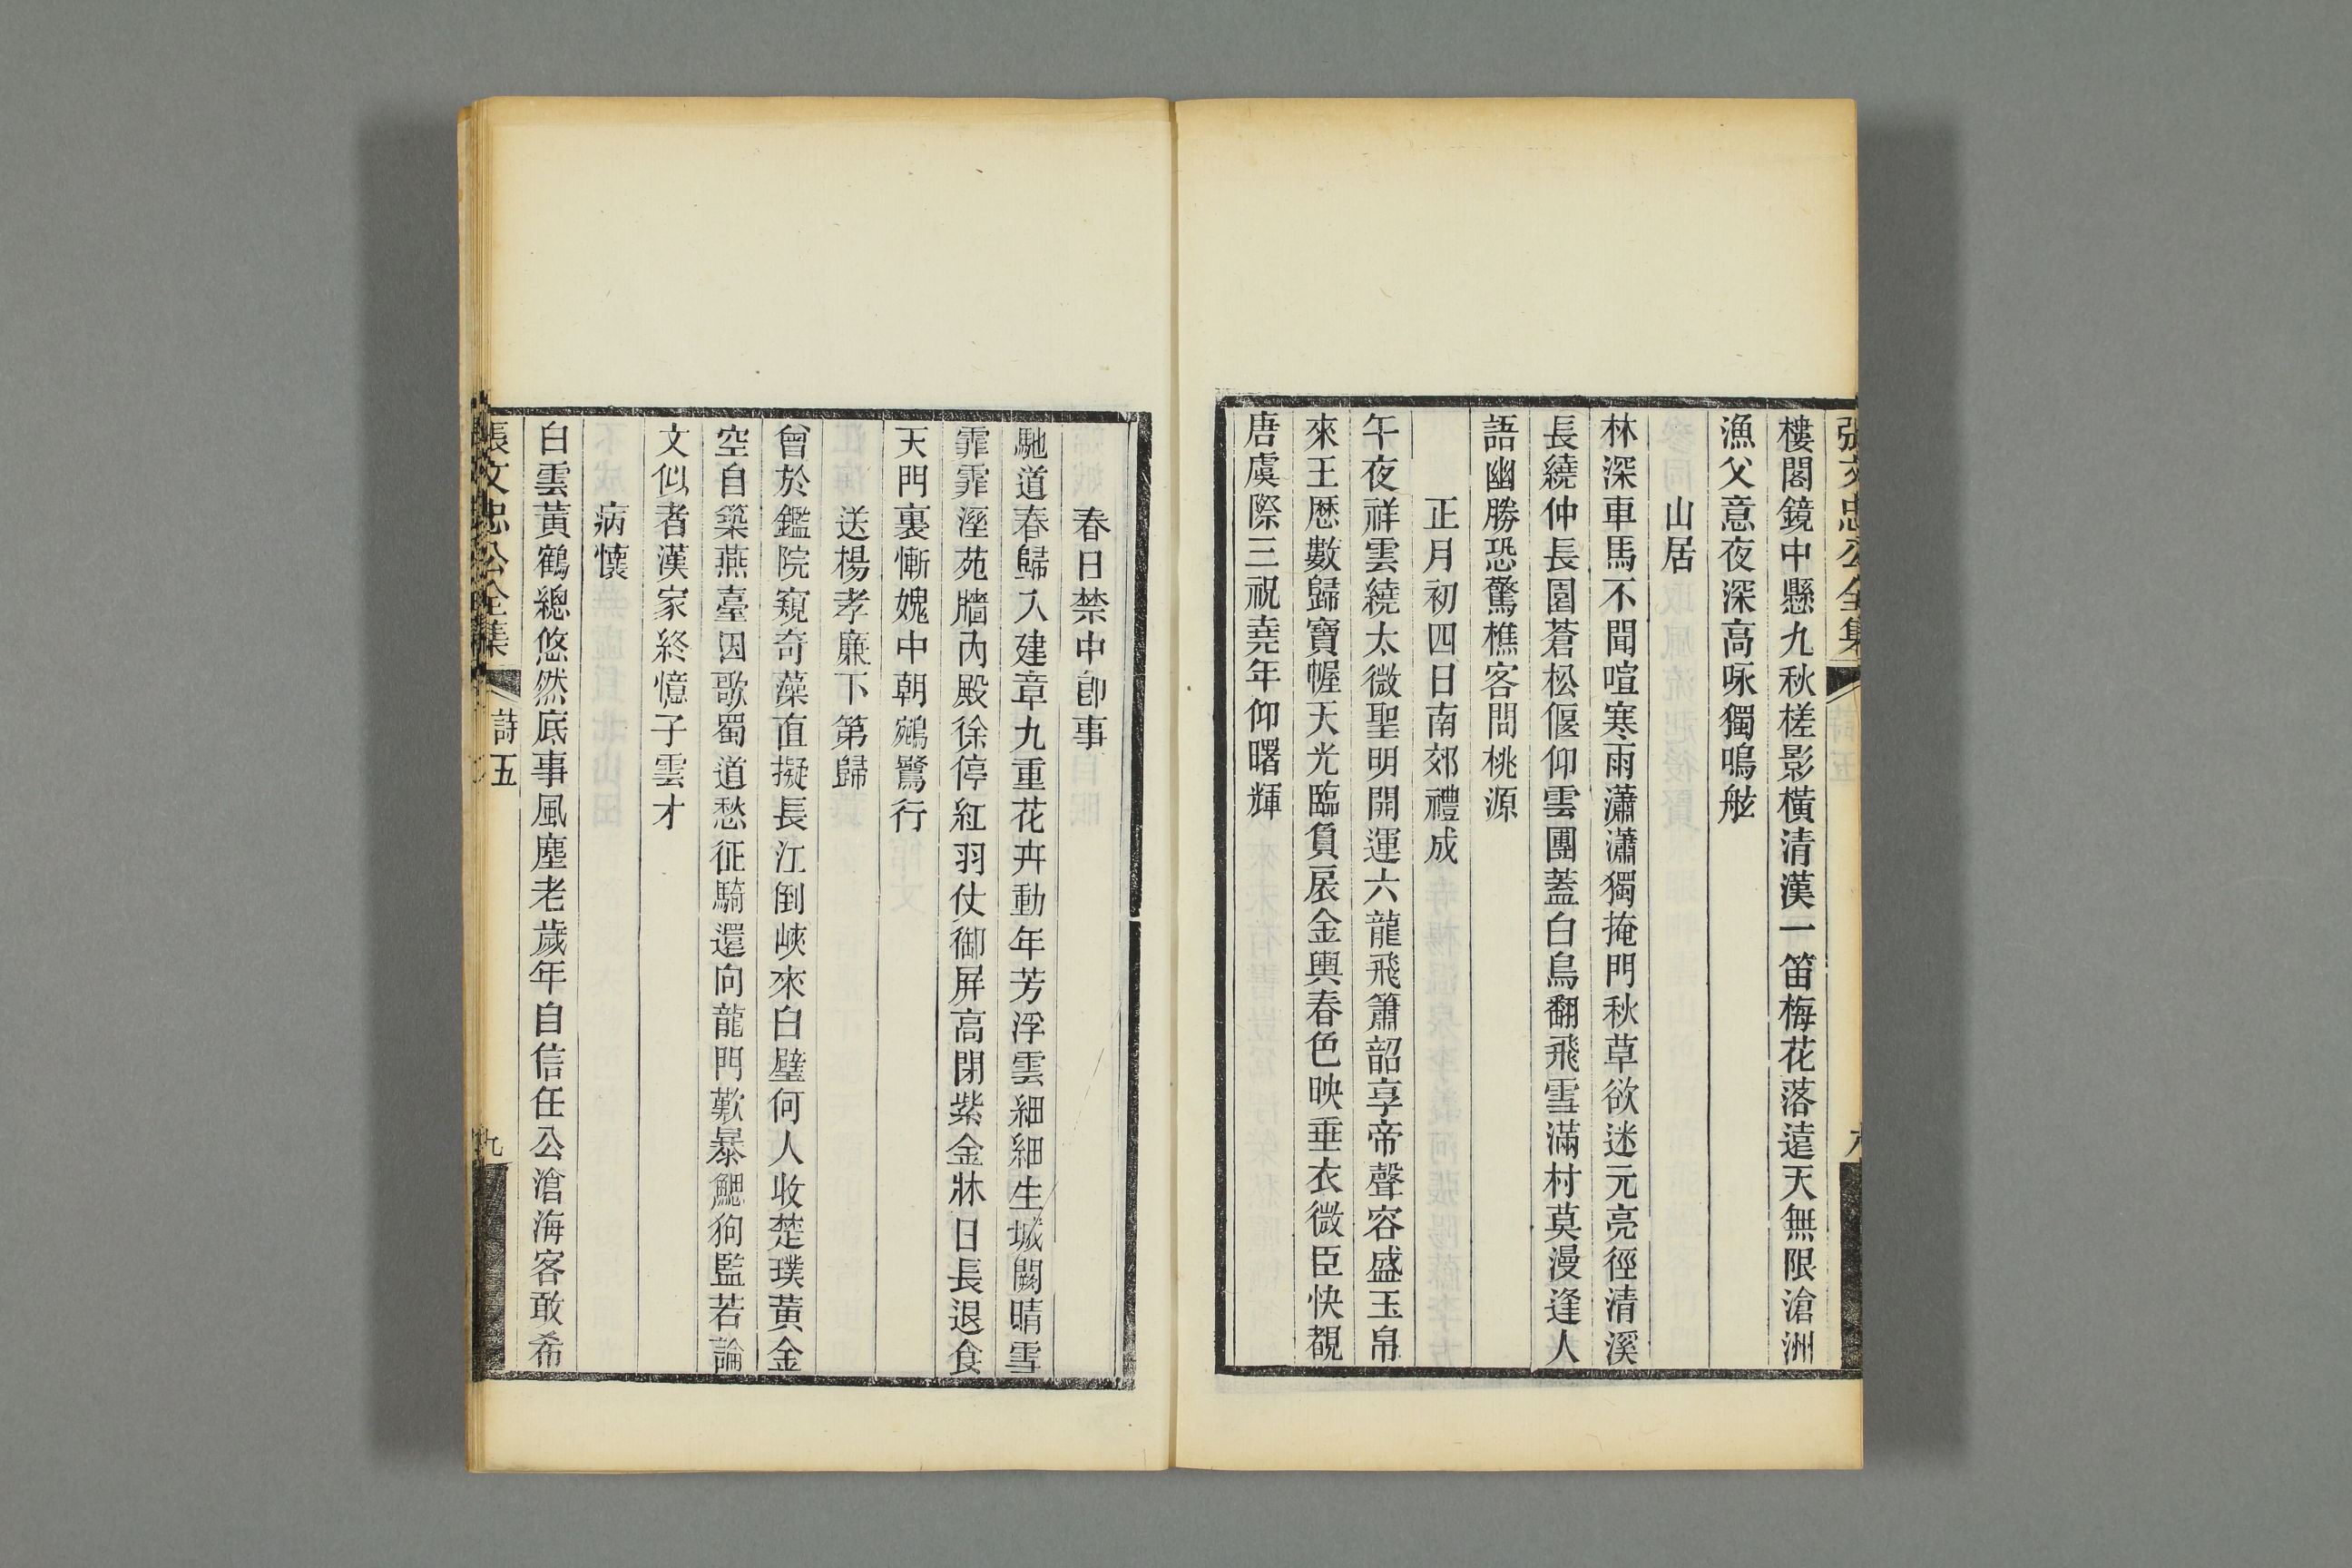 張文忠公全集
樓閣鏡中懸九秋槎影橫清漢一笛梅花落遠天無限滄洲
漁父意夜深高咏獨鳴舷
山居
林深車馬不聞喧寒雨瀟瀟獨掩門秋草欲迷元亮徑清溪
長繞仲長園蒼松偃仰雲團蓋白鳥翻飛雪滿村莫漫逢人
語幽勝恐驚樵客問桃源
正月初四日南郊禮成
午夜祥雲繞太微聖明開運六龍飛簫韶享帝聲容盛玉帛
來王歷數歸寶幄天光臨負扆金輿春色映垂衣微臣快覩
唐虞際三祝堯年仰曙輝
春日禁中卽事
馳道春歸入建章九重花卉動年芳浮雲細細生城闕晴雪
霏霏溼苑牆內殿徐停紅羽仗御屏高閉紫金牀日長退食
天門裏慚媿中朝鵷鷺行
送楊孝廉下第歸
曾於鑑院窺奇藻直擬長江倒峽來白璧何人收楚璞黃金
空自築燕臺因歌蜀道愁征騎還向龍門歎暴鰓狗監若論
文似者漢家終憶子雲才
病懷
白雲黃鶴總悠然底事風塵老歲年自信任公滄海客敢希
張文忠公全集
詩五
九